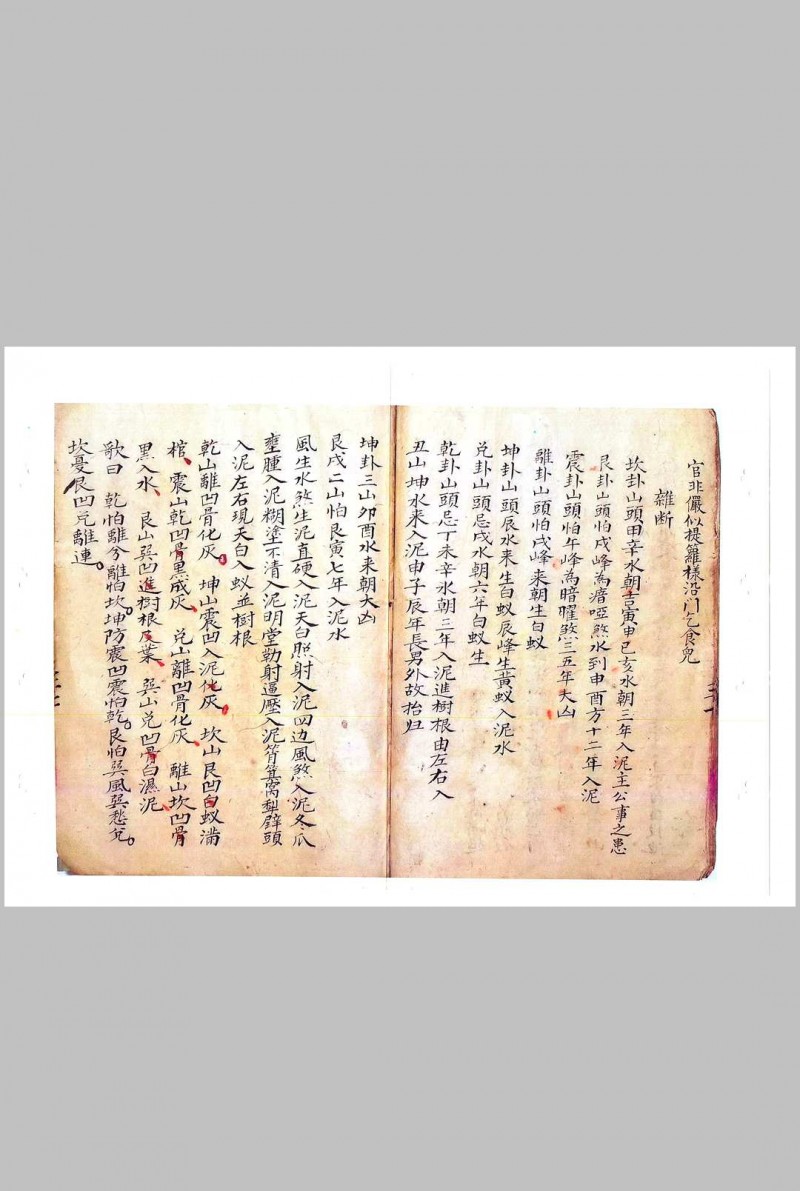 官非儼似提籮樣沿门乞食兒
雜断
坎卦山頭甲辛水朝言寅申巳亥水朝三年入泥主公事之患
艮卦山頭怕戌峰為瘖啞煞水到申酉方十二年入泥
震卦山頭怕午峰為暗曜煞三五年大凶
離卦山頭怕戌峰来朝生白蚁
坤卦山頭辰水来生白蚁辰峰生黃蚁入泥水
兑卦山頭忌戌水朝六年白蚁生
乾卦山頭忌丁未辛水朝三年入泥進樹根由左右入
丑山坤水来入泥申子辰年長男外故抬归
坤卦三山卯酉水来朝大凶
艮戌二山怕艮寅七年入泥水
風生水煞生泥直硬入泥天白照射入泥四边風煞入泥冬爪
壅腫入泥糊塗不清入泥明堂勒射逼壓入泥筲箕窩犁壁頭
入泥左右現天白入蚁並樹根
乾山離凹骨化灰。坤山震凹入泥化灰。坎山艮凹白蚁满
棺、震山乾凹骨黑成灰、兑山離凹骨化灰、離山坎凹骨
黑入水、艮山巽凹進樹根及葉、巽山兑凹骨白濕泥
歌曰 乾怕離兮離怕坎。坤防震凹震怕乾。艮怕巽風巽愁兌。
坎憂艮凹兑離連。